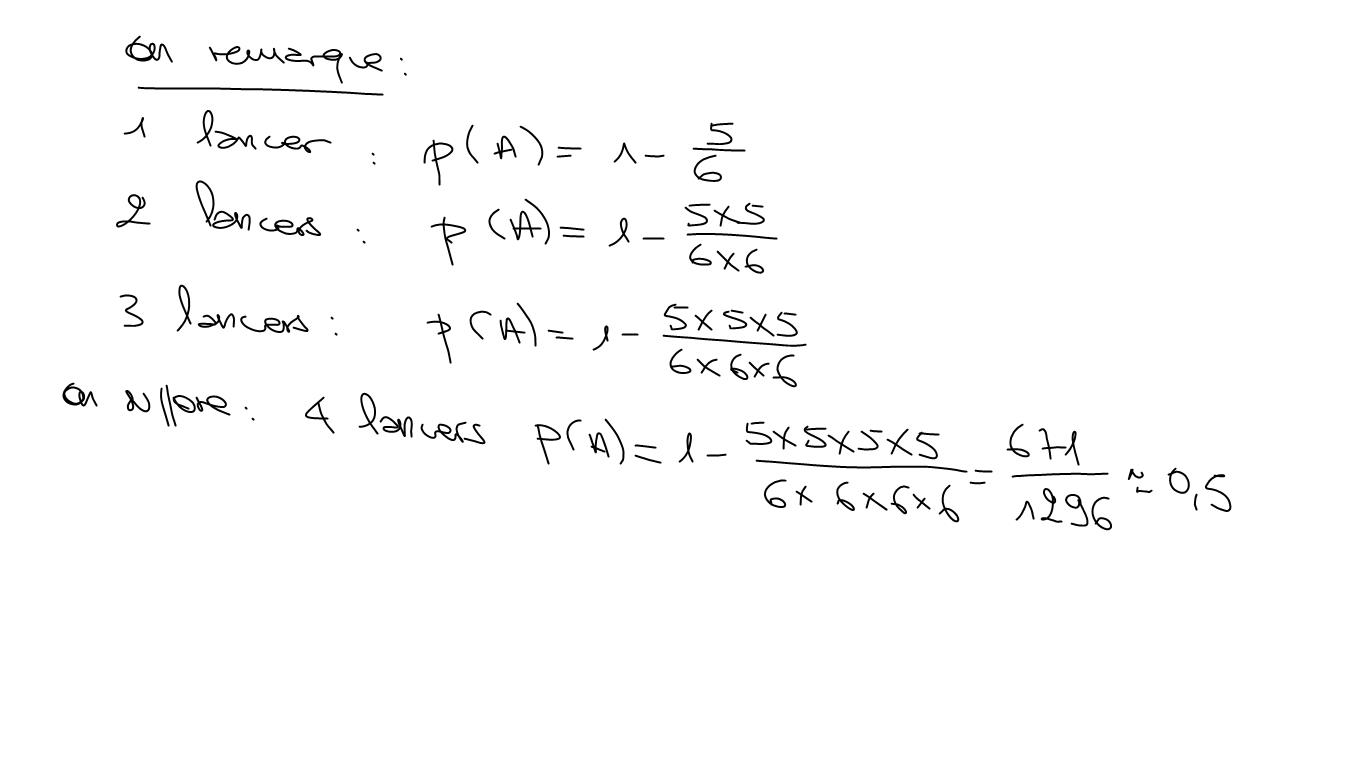 on remarque :
1 lancer : p(A) = 1 - 5/6
2 lancers : p(A) = 1 - 5×5/6×6
3 lancers : p(A) = 1 - 5×5×5/6×6×6
on : 4 lancers p(A) = 1 - 5×5×5×5/6×6×6×6 = 671/1296 ≈ 0,5